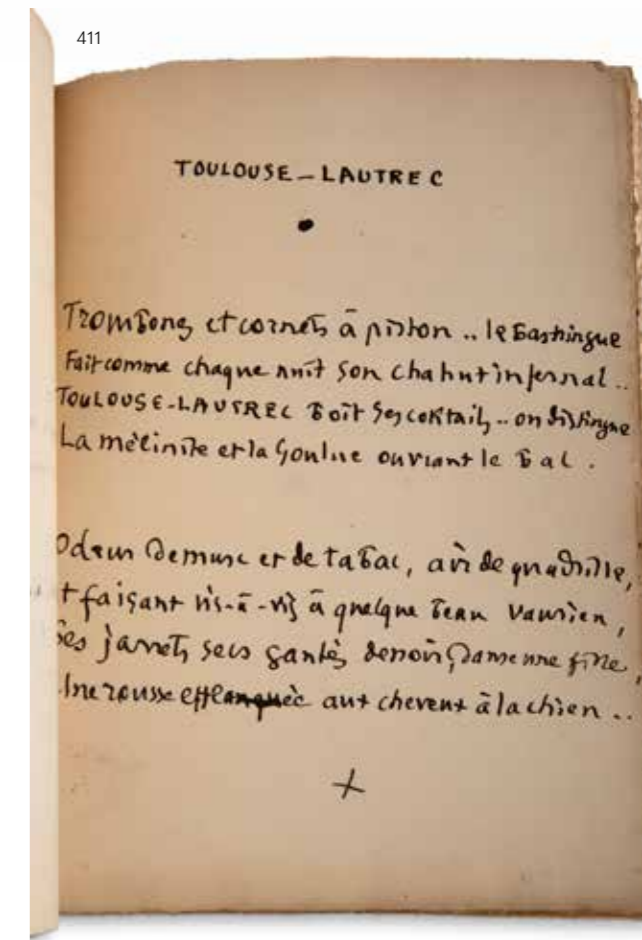 411
TOULOUSE-LAUTREC
Trombones et cornets à piston .. le bastringue
Fait comme chaque nuit son chahut infernal ..
TOULOUSE-LAUTREC boit ses coktails .. on distingue
La mélinite et la Goulue ouvrant le bal .
Odeur de musc et de tabac, air de quadrille,
t faisant vis-à-vis à quelque beau vaurien,
ses jarrets secs gantés de noir, danse une fille,
Une rousse efflanquée aux cheveux à la chien ..